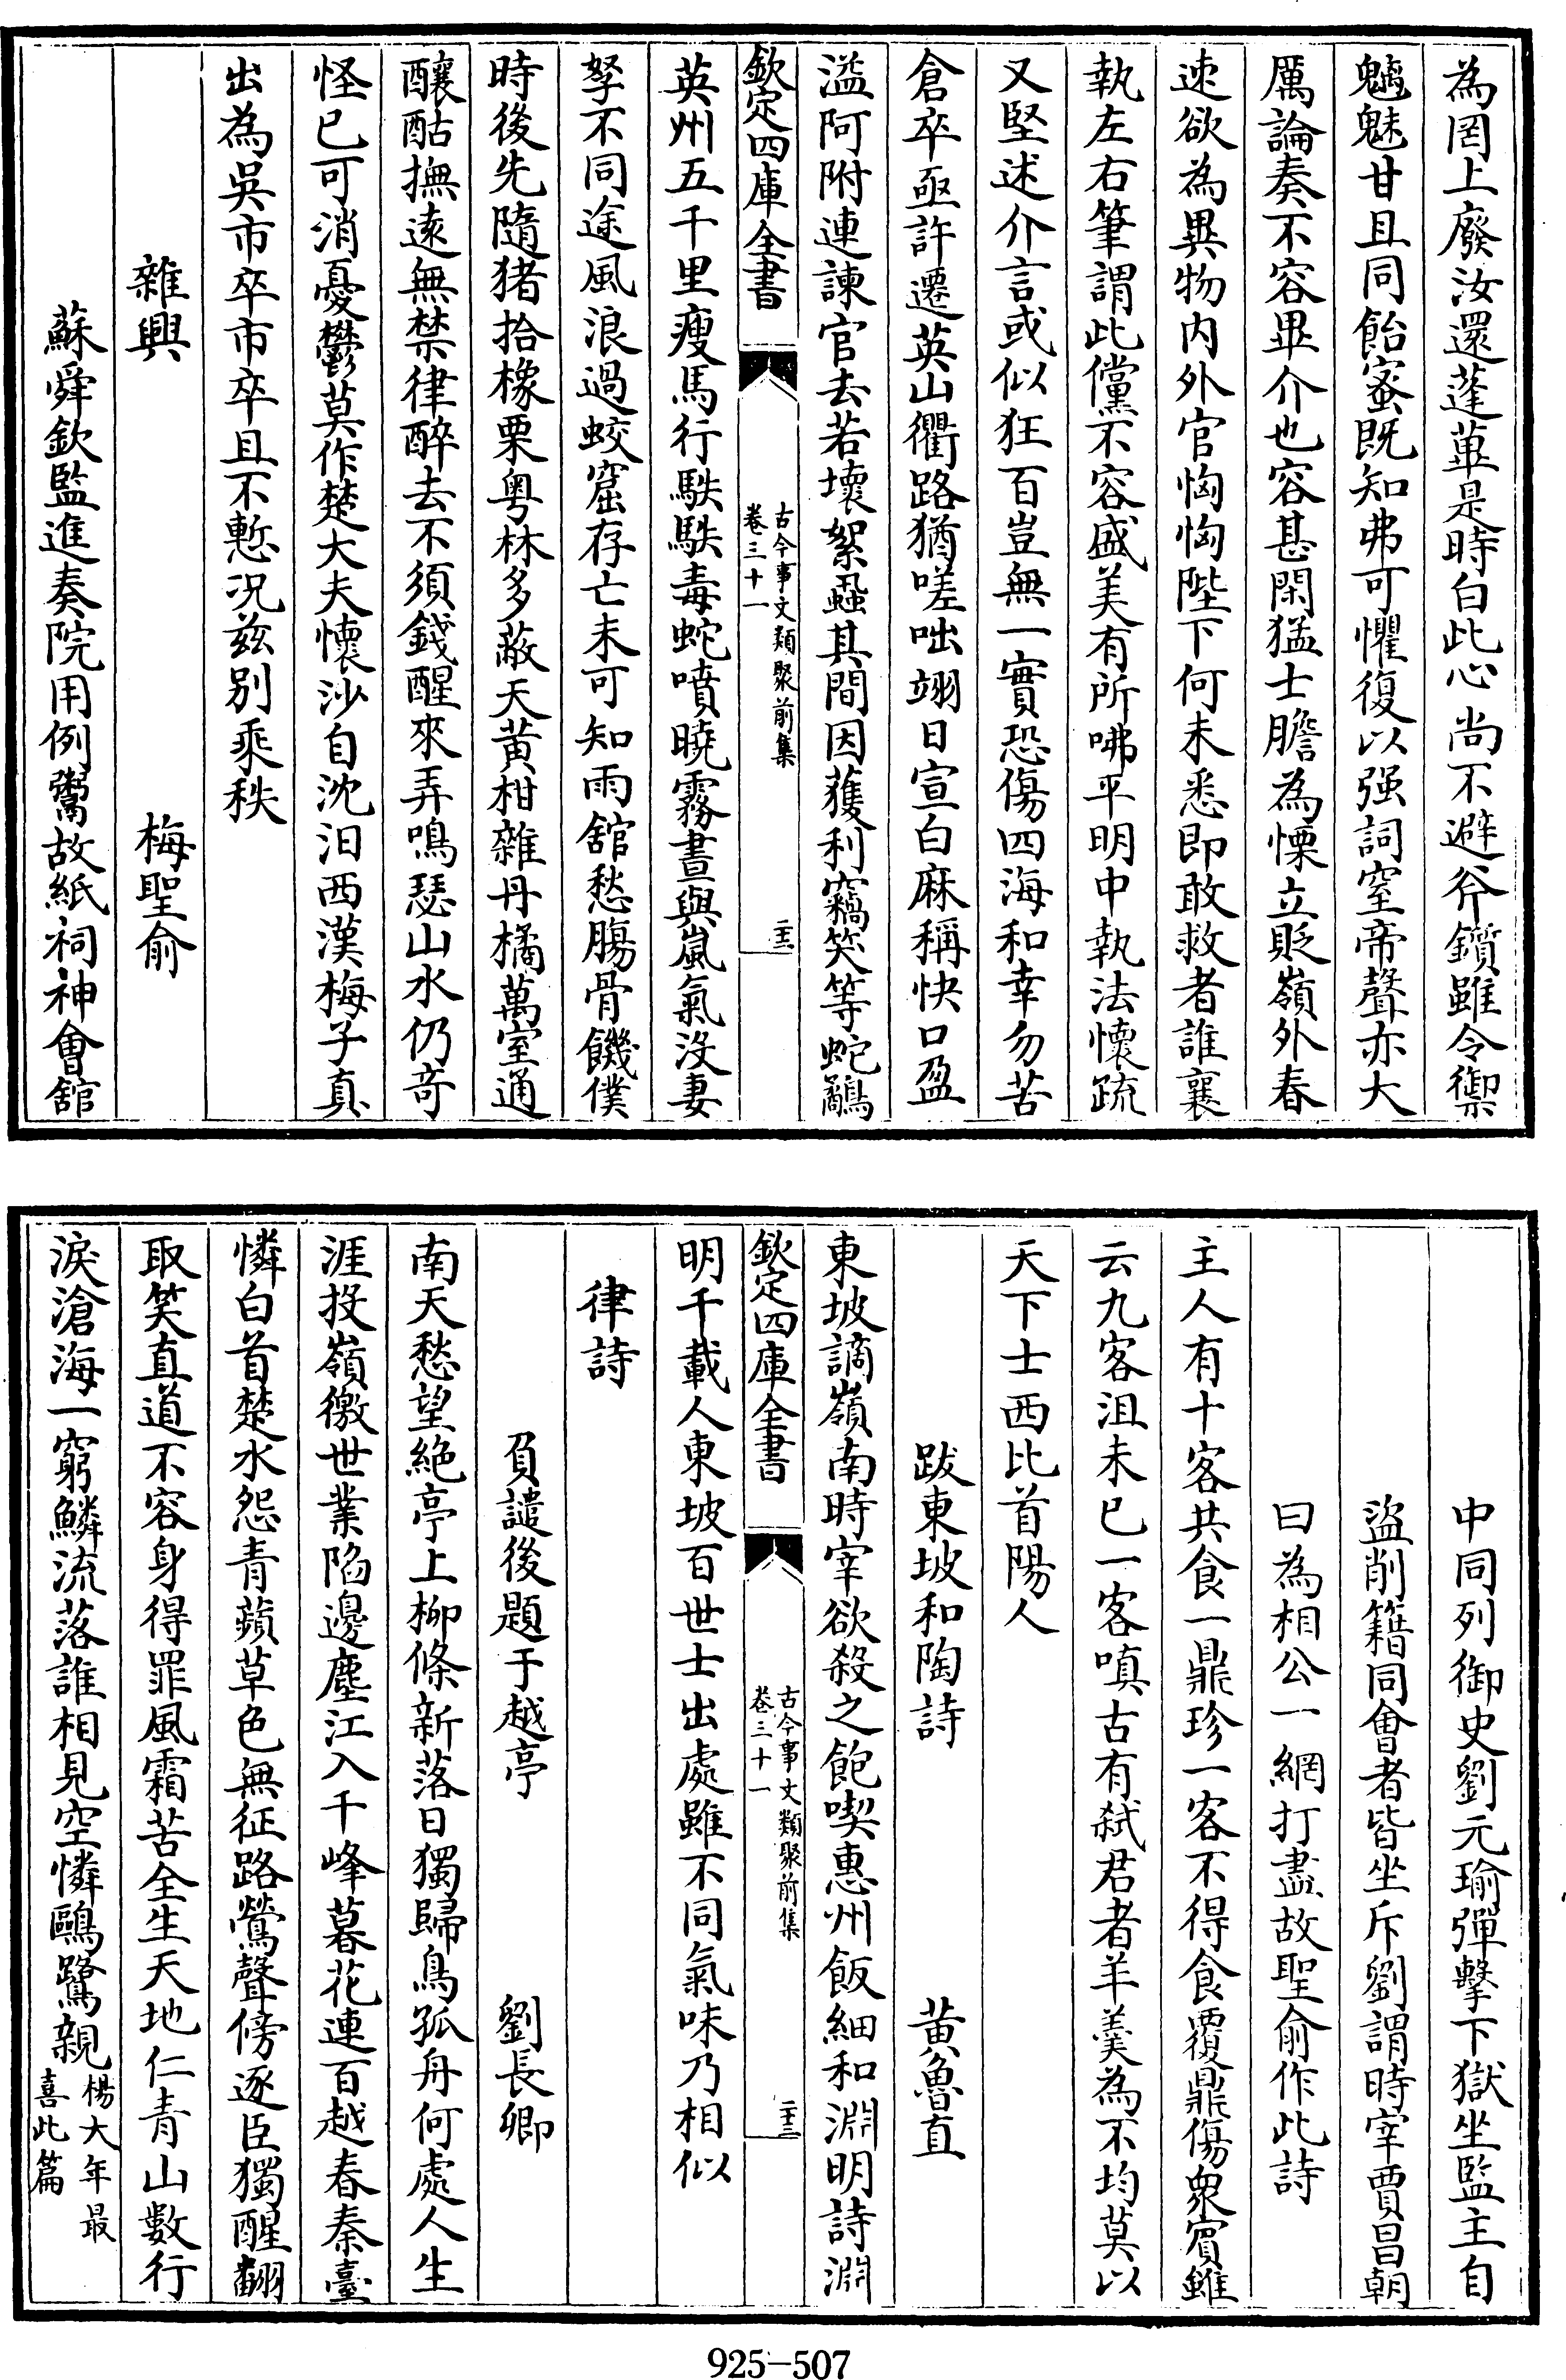 為罔上廢汝還蓬蓽是時白此心尚不避斧鑕雖令禦
魑魅甘且同飴蜜既知弗可懼復以强詞窒帝聲亦大
厲論奏不容畢介也容甚閑猛士膽為慄立貶嶺外春
速欲為異物内外官恟恟陛下何未悉即敢救者誰襄
執左右筆謂此儻不容盛美有所咈平明中執法懷疏
又堅述介言或似狂百豈無一實恐傷四海和幸勿苦
倉卒亟許遷英山衢路猶嗟咄翊日宣白麻稱快口盈
溢阿附連諫官去若壞絮蝨其間因獲利竊笑等蛇鷸
欽定四庫全書
古今事文類聚前集
卷三十一
二十三
英州五千里瘦馬行駃駃毒蛇噴曉霧晝與嵐氣没妻
孥不同途風浪過蛟窟存亡未可知雨舘愁膓骨饑僕
時後先隨猪拾橡栗粤林多蔽天黄柑雜丹橘萬室通
釀酤撫遠無禁律醉去不須錢醒來弄鳴瑟山水仍竒
怪已可消憂鬱莫作楚大夫懷沙自沈汨西漢梅子真
出為吳市卒市卒且不慙况兹别乘秩
雜興　梅聖俞
蘇舜欽監進奏院用例鬻故紙祠神會舘
中同列御史劉元瑜彈擊下獄坐監主自
盜削籍同會者皆坐斥劉謂時宰賈昌朝
曰為相公一網打盡故聖俞作此詩
主人有十客共食一鼎珍一客不得食覆鼎傷衆賔雖
云九客沮未已一客嗔古有弑君者羊羮為不均莫以
天下士西比首陽人
跋東坡和陶詩　黄魯直
東坡謫嶺南時宰欲殺之飽喫惠州飯細和淵明詩淵
欽定四庫全書
古今事文類聚前集
卷三十一
二十三
明千載人東坡百世士出處雖不同氣味乃相似
律詩
負譴後題于越亭　劉長卿
南天愁望絶亭上柳條新落日獨歸鳥孤舟何處人生
涯投嶺徼世業陷邊塵江入千峰暮花連百越春秦臺
憐白首楚水怨青蘋草色無征路鶯聲傍逐臣獨醒翻
取笑直道不容身得罪風霜苦全生天地仁青山數行
淚滄海一窮鱗流落誰相見空憐鷗鷺親楊大年最
喜此篇
925-507